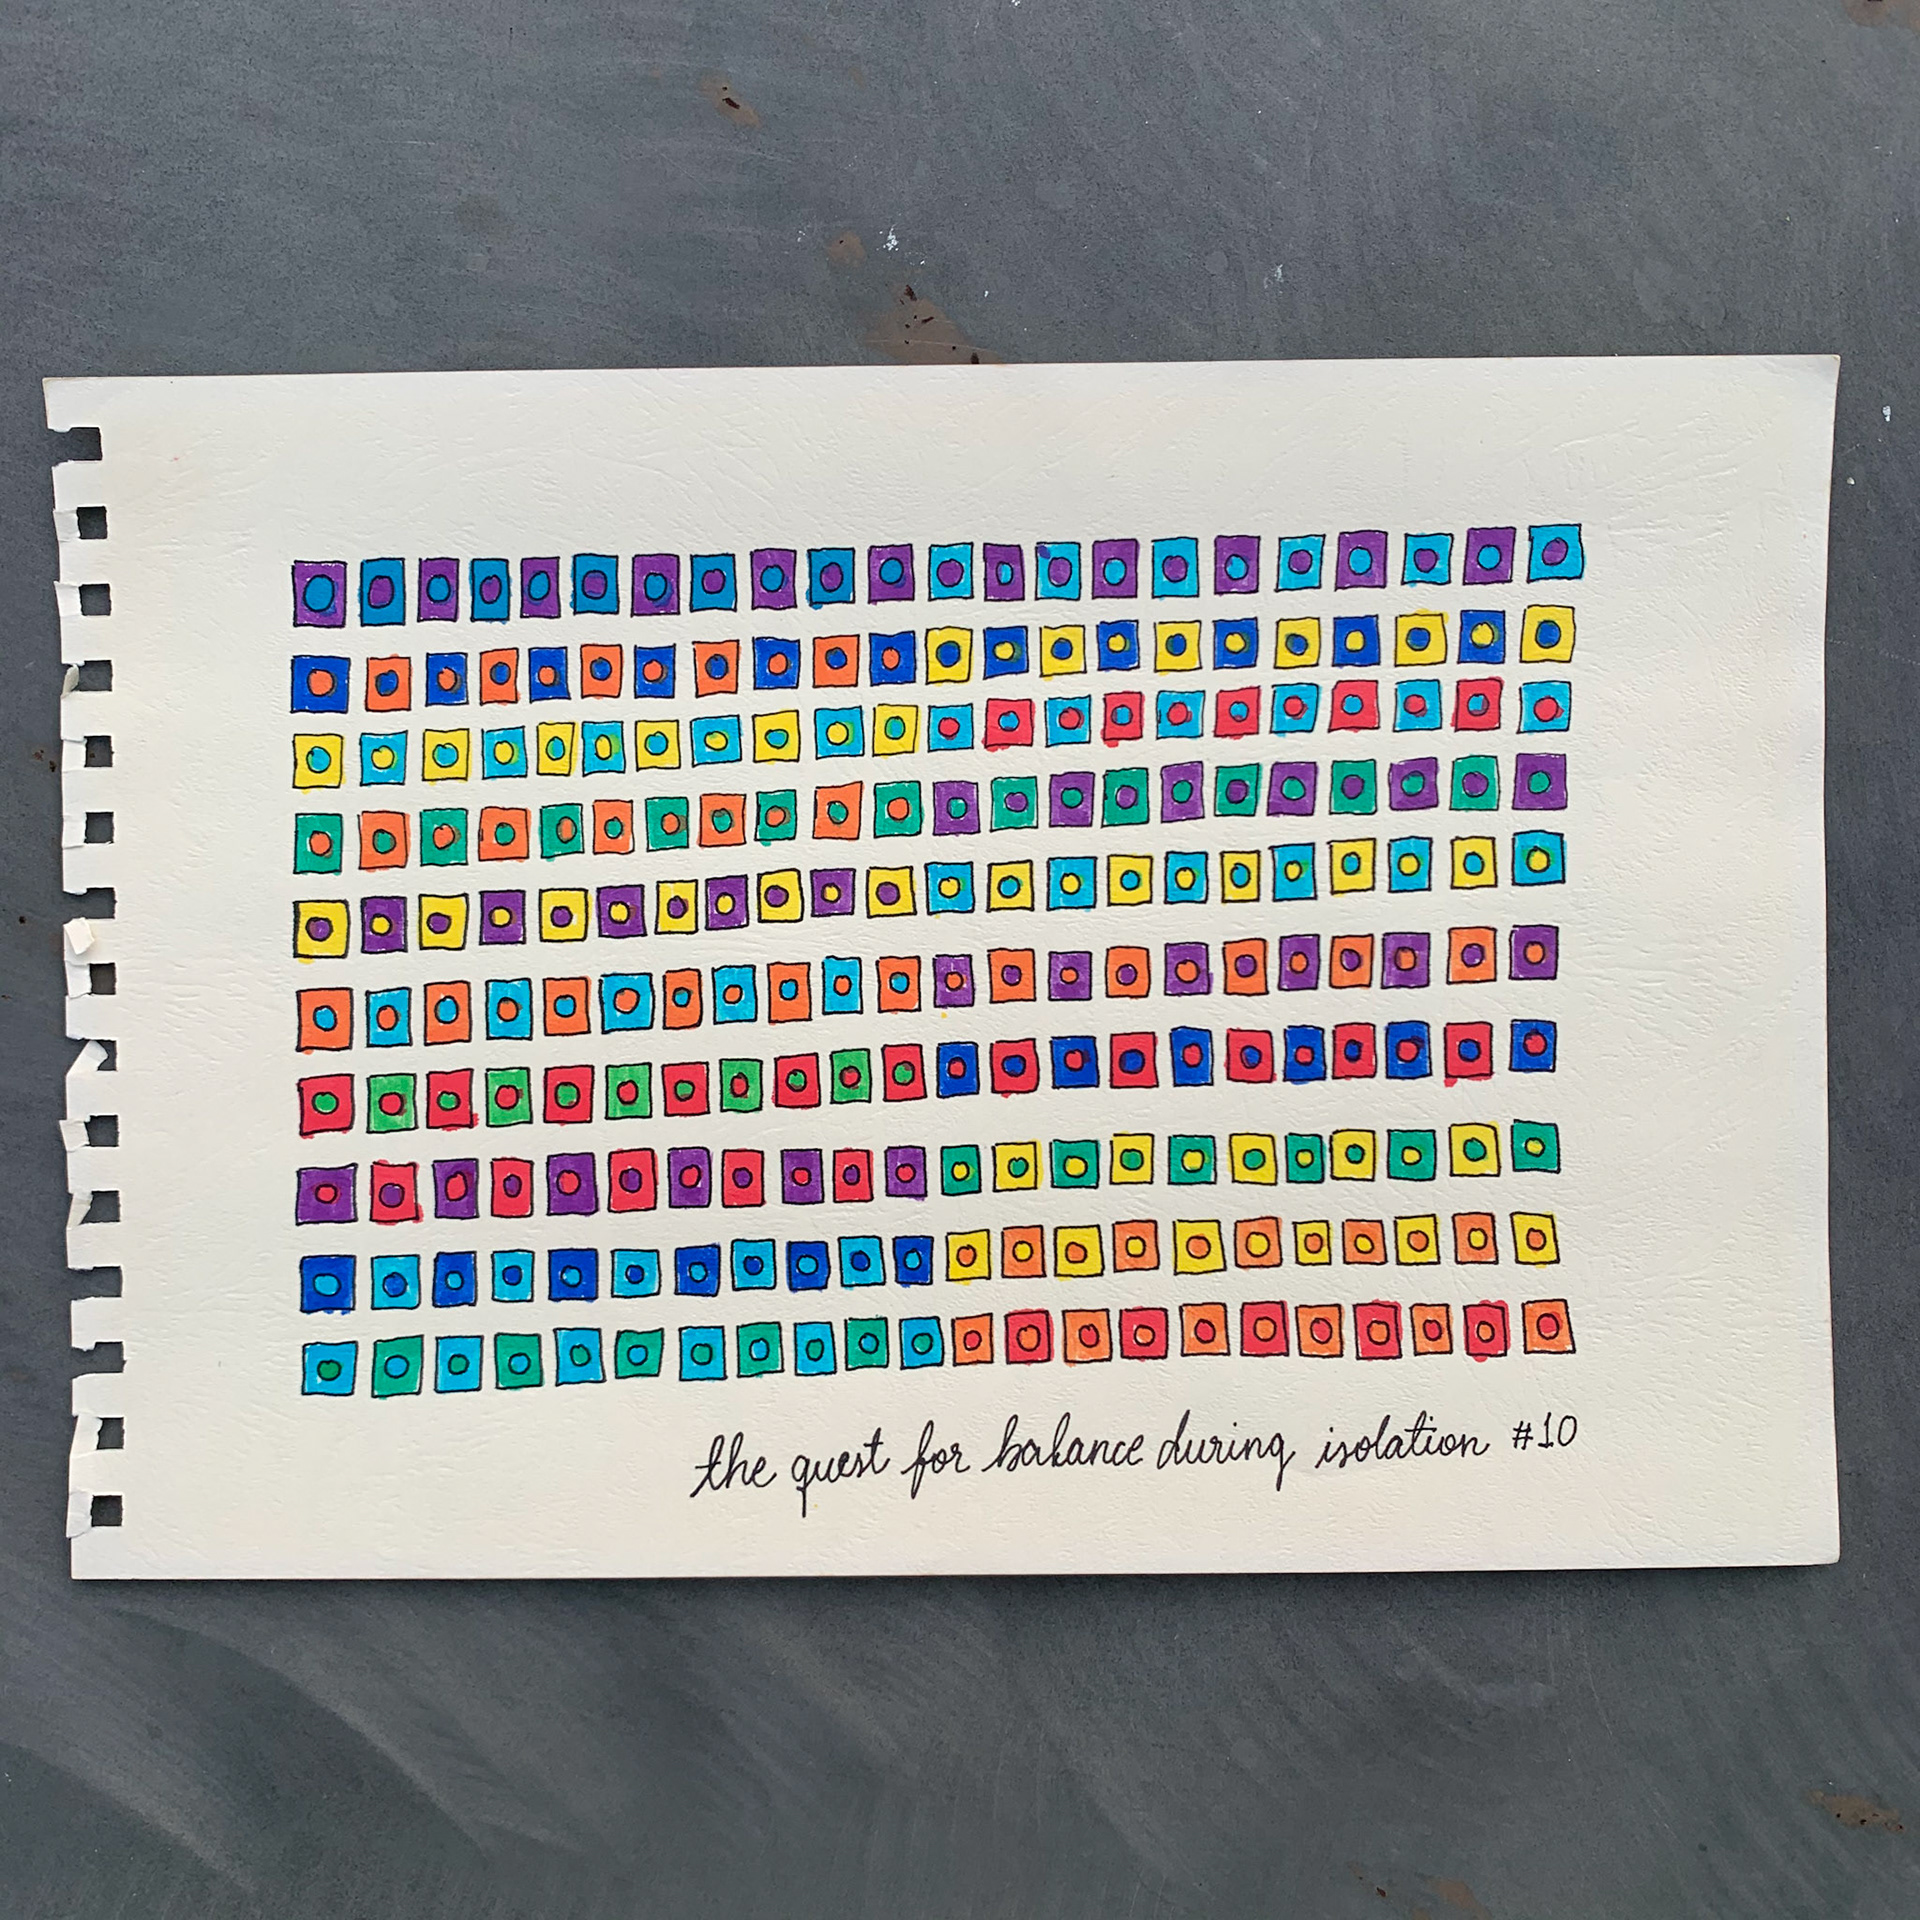 the quest for balance during isolation #10